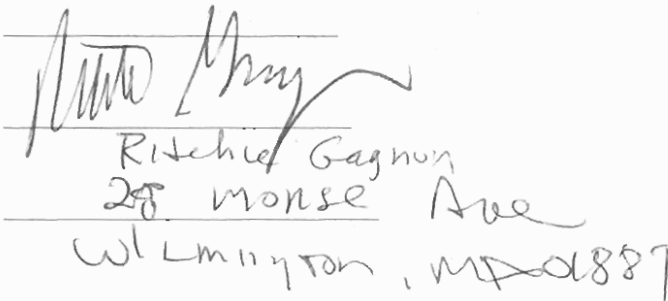 Ritchie Gagnon
28 Monse Ave
Wilmington, MA 01887